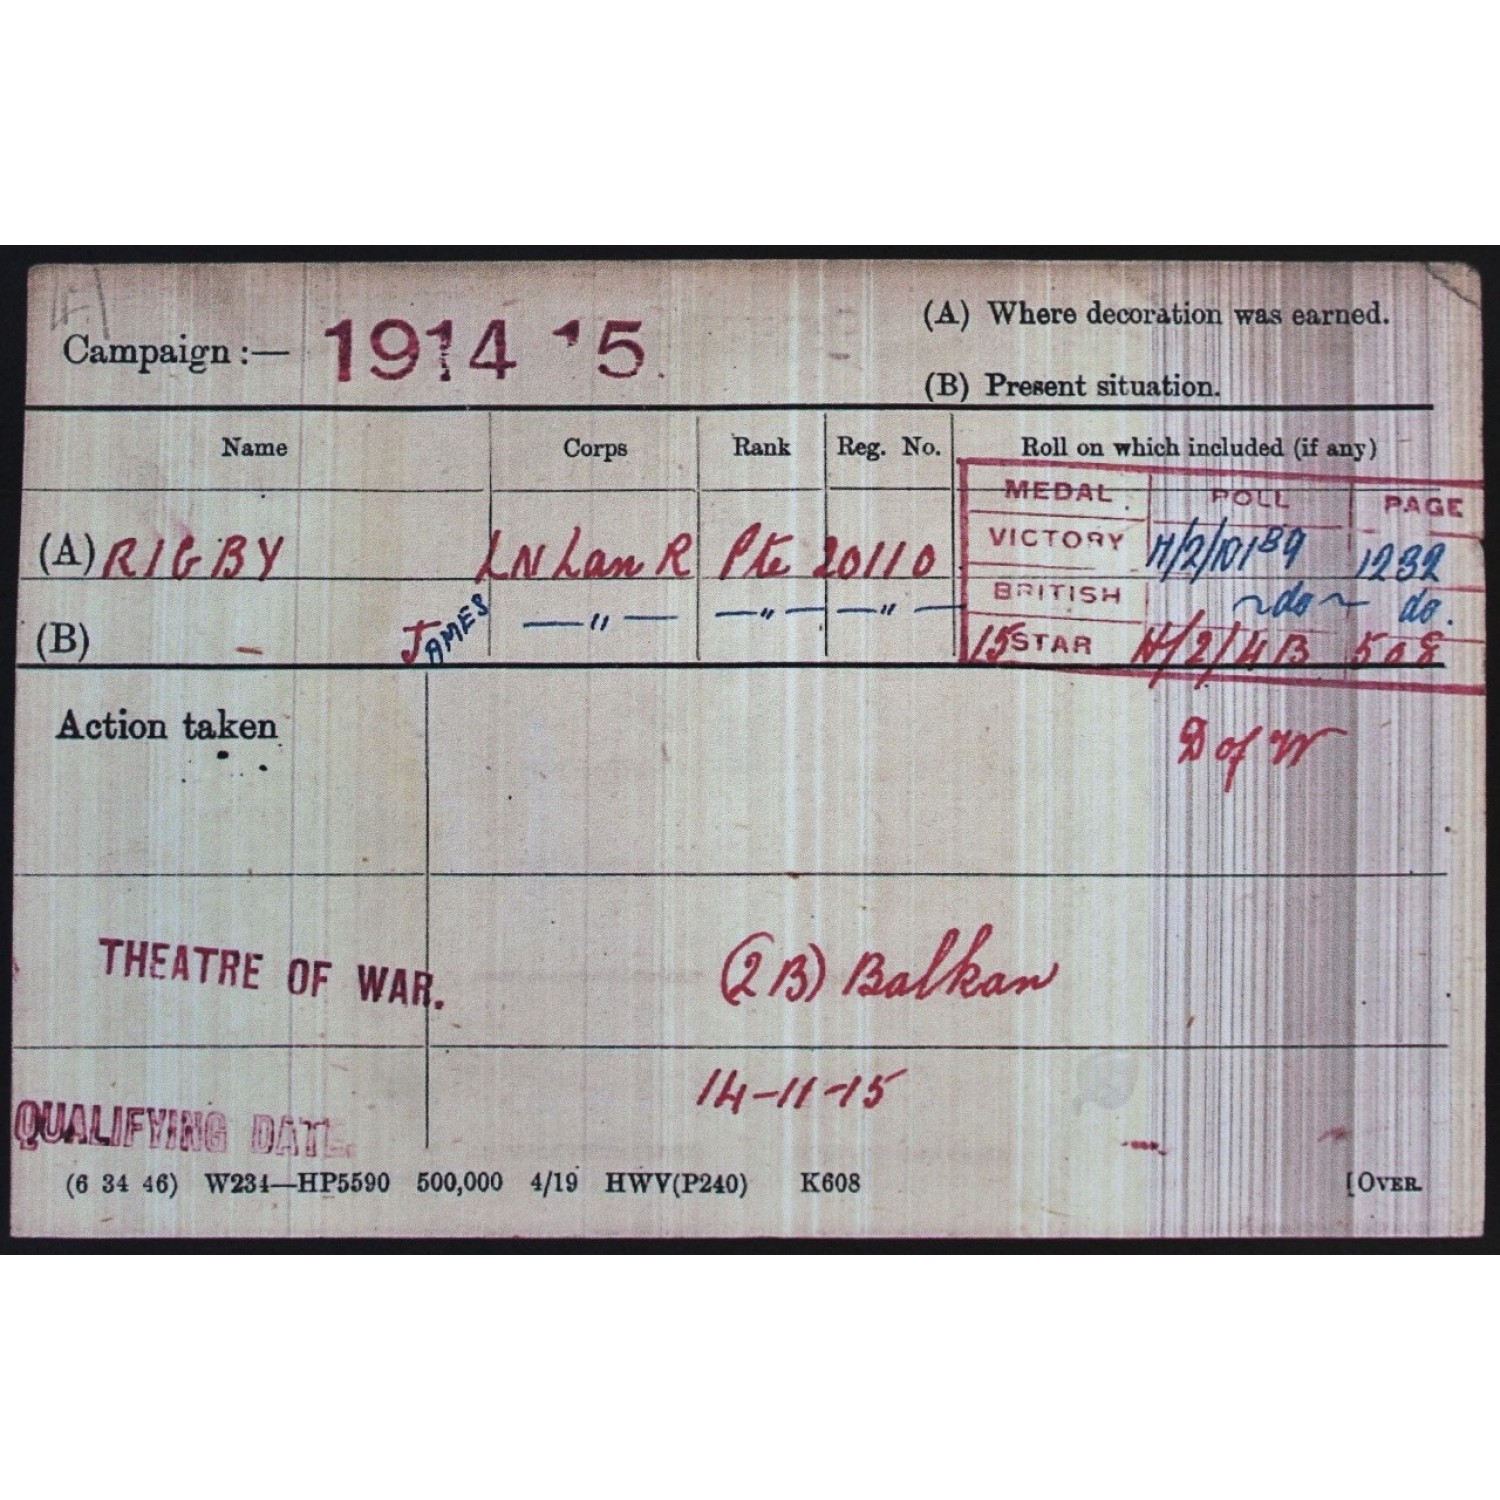 Campaign :— 1914 15
(A) Where decoration was earned.
(B) Present situation.
Name Corps Rank Reg. No. Roll on which included (if any)
MEDAL ROLL PAGE
(A) RIGBY LN Lan R Pte 20110 VICTORY H/2/101B9 1232
BRITISH ~do~ do.
(B) JAMES —〃— —〃— —〃— 15 STAR H/2/4B 508
Action taken
D of W
THEATRE OF WAR. (2B) Balkan
QUALIFYING DATE. 14-11-15
(6 34 46) W234—HP5590 500,000 4/19 HWV(P240) K608 [OVER.